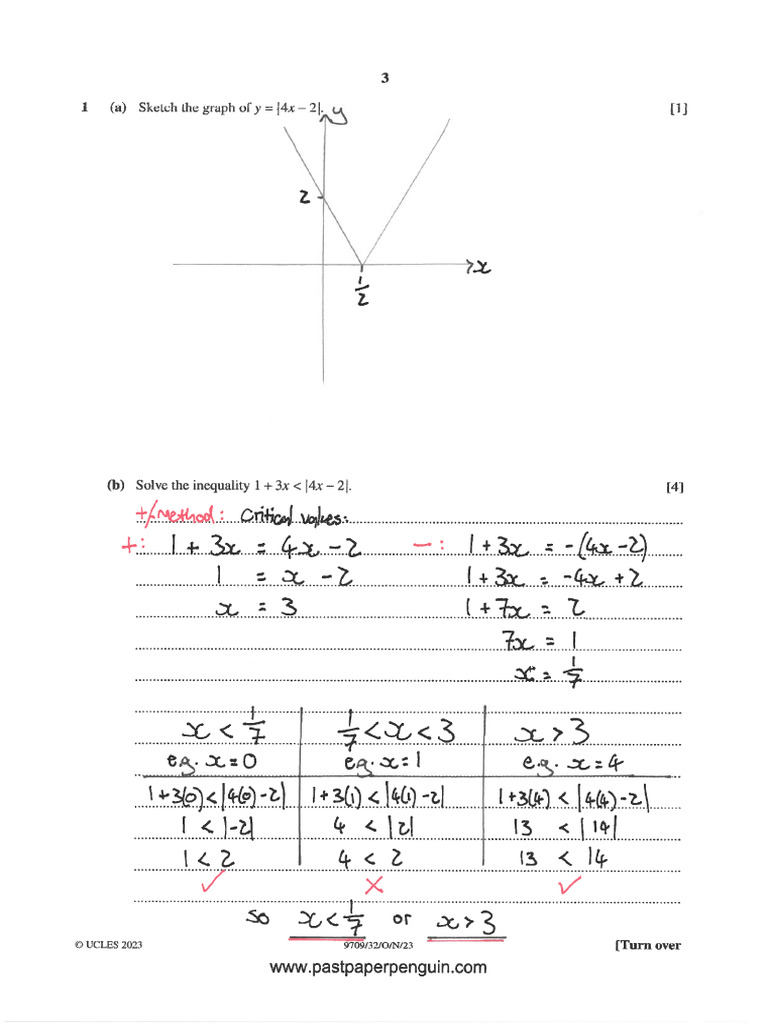 3
1 (a) Sketch the graph of y = |4x – 2|. [1]
y
2
x
1/2
(b) Solve the inequality 1 + 3x < |4x – 2|. [4]
+/- method: Critical values:
+: 1 + 3x = 4x - 2 -: 1 + 3x = -(4x - 2)
1 = x - 2 1 + 3x = -4x + 2
x = 3 1 + 7x = 2
7x = 1
x = 1/7
x < 1/7 1/7 < x < 3 x > 3
e.g. x = 0 e.g. x = 1 e.g. x = 4
1+3(0) < |4(0)-2| 1+3(1) < |4(1)-2| 1+3(4) < |4(4)-2|
1 < |-2| 4 < |2| 13 < |14|
1 < 2 4 < 2 13 < 14
✓ ✗ ✓
so x < 1/7 or x > 3
© UCLES 2023 9709/32/O/N/23 [Turn over
www.pastpaperpenguin.com